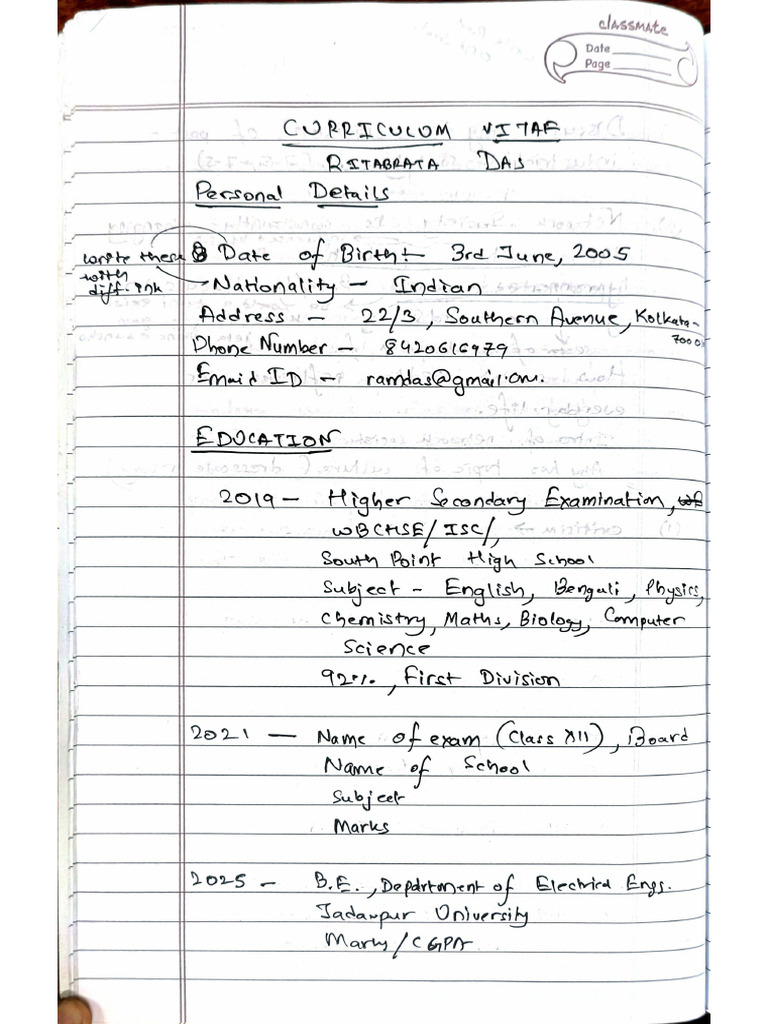 classmate
Date
Page
CURRICULUM VITAE
RITABRATA DAS
Personal Details
write these with diff. ink
Date of Birth:- 3rd June, 2005
Nationality - Indian
Address - 22/3, Southern Avenue, Kolkata-
Phone Number - 8420616979
Email ID - ramdas@gmail.com.
EDUCATION
2019 - Higher Secondary Examination,
WBCHSE/ISC/,
South Point High School
Subject - English, Bengali, Physics,
Chemistry, Maths, Biology, Computer
Science
92%, First Division
2021 - Name of exam (Class XII), Board
Name of School
Subject
Marks
2025 - B.E., Department of Electrical Engg.
Jadavpur University
Marks/CGPA